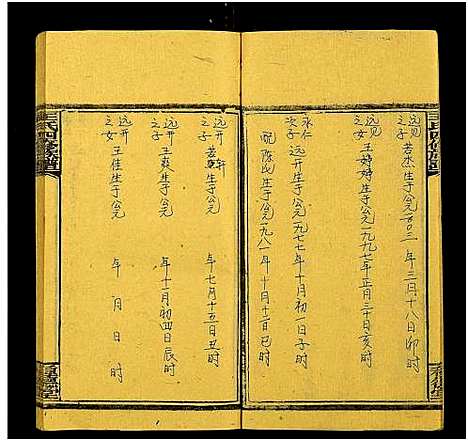 远见之子 若杰生于公元二〇〇三年三月十八日卯时
远见之女 王婷婷生于公元一九九七年正月三十日亥时
永仁次子 远开生于公元一九七七年十月初一日子时
配陈氏生于公元一九八一年十月十二日巳时
远开之子 若轩生于公元 年七月十五日丑时
远开之子 王爽生于公元 年十一月初四日辰时
远开之女 王佳生于公元 年 月 日 时
王氏四修族谱